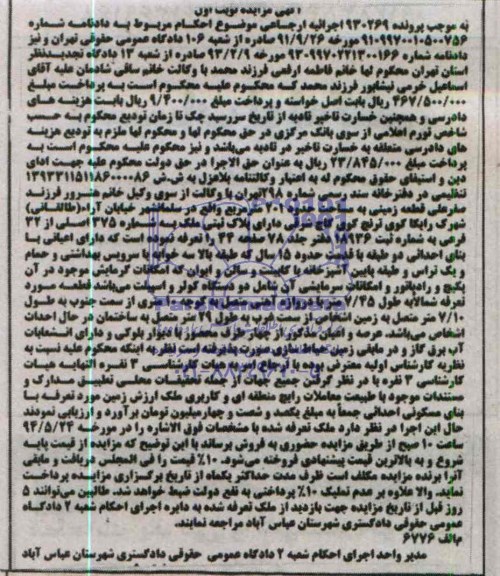 آگهی مزایده نوبت اول
به موجب پرونده ۹۳۰۲۶۹ اجرائیه ارجاعی موضوع احکام مربوط به دادنامه شماره
۹۱۰۹۹۷۰۰۱۰۵۰۰۷۵۶ مورخه ۹۱/۹/۲۶ صادره از شعبه ۱۰۶ دادگاه عمومی حقوقی تهران و نیز
دادنامه شماره ۹۳۰۹۹۷۰۲۲۱۳۰۰۱۶۶ مورخه ۹۳/۲/۹ صادره از شعبه ۱۳ دادگاه تجدیدنظر
استان تهران محکوم لها خانم فاطمه ارفعی فرزند محمد با وکالت خانم ساقی شادمان علیه آقای
اسماعیل خرمی نیشابور فرزند محمد که محکوم علیه محکوم است به پرداخت مبلغ
۴۶۷/۵۰۰/۰۰۰ ریال بابت اصل خواسته و پرداخت مبلغ ۹/۴۰۰/۰۰۰ ریال بابت هزینه های
دادرسی و همچنین خسارت تاخیر تادیه از تاریخ سررسید چک تا زمان تودیع محکوم به حسب
شاخص تورم اعلامی از سوی بانک مرکزی در حق محکوم لها و محکوم لها ملزم به تودیع هزینه
های دادرسی متعلقه به خسارت تاخیر در تادیه می‌باشد و نیز محکوم علیه محکوم است به
پرداخت مبلغ ۲۳/۸۴۵/۰۰۰ ریال به عنوان حق الاجرا در حق دولت محکوم علیه جهت ادای
دین و استیفای حقوق محکوم له به اعتبار وکالتنامه بلاعزل به ش.ش ۱۳۹۳۲۱۱۵۱۱۸۶۰۰۰۰۸۶
تنظیمی در دفترخانه سند رسمی شماره ۲۹۸ تهران با وکالت از سوی وکیل خانم مسرور فرزند
صفرعلی قطعه زمینی به مساحت مربع واقع در سلمانشهر خیابان آزاد (طالقانی)
شهرک رایکا کوی ترنج کوی کاج شرقی دارای پلاک ثبتی ملک شماره ۳۷۵ اصلی از ۳۲
فرعی به شماره ثبت ۱۸۹۳۶ دفتر جلد ۷۸ صفحه ۳۴ را تعرفه نموده است که دارای اعیانی با
بنای احداثی دو طبقه با قدمت حدود ۱۵ سال که طبقه بالا سه خوابه با سرویس بهداشتی و حمام
و یک تراس و طبقه پایین آشپزخانه با کابینت و سالن و ایوان که امکانات گرمایش موجود در آن
پکیج و رادیاتور و امکانات سرمایشی آن شامل دو دستگاه کولر و اسپلت می‌باشد قطعه مورد
تعرفه شمالا به طول ۷/۴۵ متر با درب آهنی متصل به کوچه متری از سمت جنوب به طول
۷/۱۰ متر متصل به زمین اشخاص از سمت غرب به طول ۲۹ متر متصل به ساختمان در حال احداث
اشخاص می‌باشد. عرصه و اعیان محصور از چهار طرف با دیوار بلوکی و دارای انشعابات
آب برق گاز و در مابقی زمین حیاط سازی صورت پذیرفته است نظر به اینکه محکوم علیه نسبت به
نظریه کارشناس اولیه معترض بوده با ارجاع امر به هیات کارشناسی ۳ نفره النهایه هیات
کارشناسی ۳ نفره با در نظر گرفتن جمیع جهات از جمله تحقیقات محلی تطبیق مدارک و
مستندات موجود با طبیعت معاملات رایج منطقه ای و کاربری ملک ارزش زمین مورد تعرفه با
بنای مسکونی احداثی جمعاً به مبلغ یکصد و شصت و چهارمیلیون تومان برآورد و ارزیابی نمودند
حال این اجرا در نظر دارد ملک تعرفه شده با مشخصات فوق الاشاره را در مورخه ۹۴/۵/۲۴
ساعت ۱۰ صبح از طریق مزایده حضوری به فروش برساند با این توضیح که مزایده از قیمت پایه
شروع و به بالاترین قیمت پیشنهادی فروخته می‌شود. ۱۰٪ قیمت را فی المجلس دریافت و مابقی
آنرا برنده مزایده مکلف است ظرف مدت حداکثر یکماه از تاریخ برگزاری مزایده پرداخت
نماید. والا علاوه بر عدم تملیک ۱۰٪ پرداختی به نفع دولت ضبط خواهد شد. طالبین می‌توانند ۵
روز قبل از تاریخ مزایده جهت بازدید از ملک تعرفه شده به دایره اجرای احکام شعبه ۲ دادگاه
عمومی حقوقی دادگستری شهرستان عباس آباد مراجعه نمایند.
م/الف ۶۷۷۶
مدیر واحد اجرای احکام شعبه ۲ دادگاه عمومی حقوقی دادگستری شهرستان عباس آباد